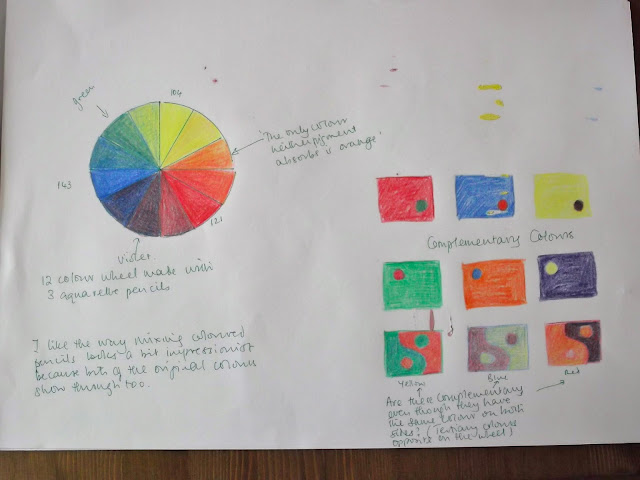 green
104
"The only colour
neither pigment
absorbs is orange."
143
121
Violet.
12 colour wheel made with
3 aquarelle pencils
I like the way mixing coloured
pencils looks a bit impressionist
because bits of the original colours
show through too.
Complementary Colours
Yellow
Blue
Red
Are these complementary
even though they have
the same colour on both
sides? (Tertiary colours
opposite on the wheel)